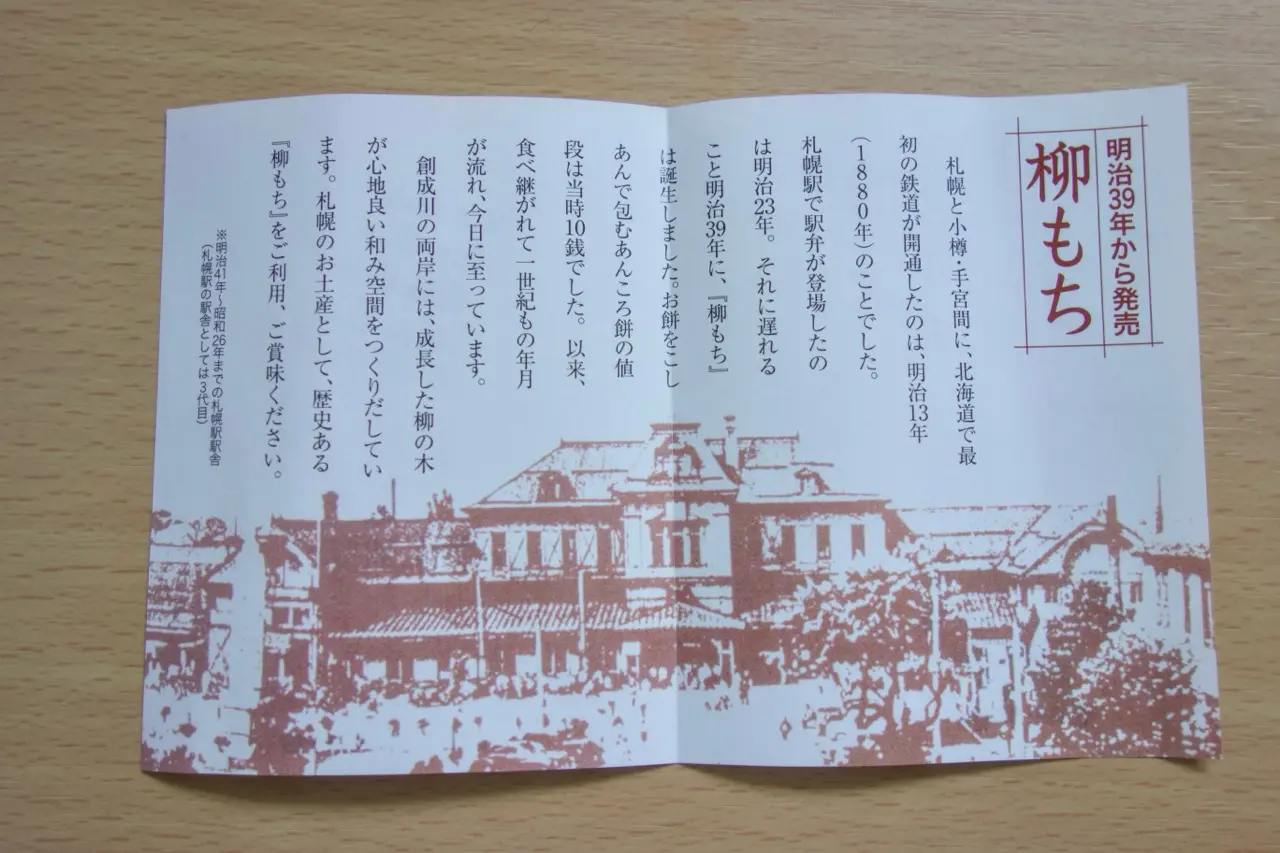 明治39年から発売
柳もち
札幌と小樽・手宮間に、北海道で最
初の鉄道が開通したのは、明治13年
(1880年)のことでした。
札幌駅で駅弁が登場したの
は明治23年。それに遅れる
こと明治39年に、『柳もち』
は誕生しました。お餅をこし
あんで包むあんころ餅の値
段は当時10銭でした。以来、
食べ継がれて一世紀もの年月
が流れ、今日に至っています。
創成川の両岸には、成長した柳の木
が心地良い和み空間をつくりだしてい
ます。札幌のお土産として、歴史ある
『柳もち』をご利用、ご賞味ください。
※明治41年〜昭和26年までの札幌駅駅舎
(札幌駅の駅舎としては3代目)